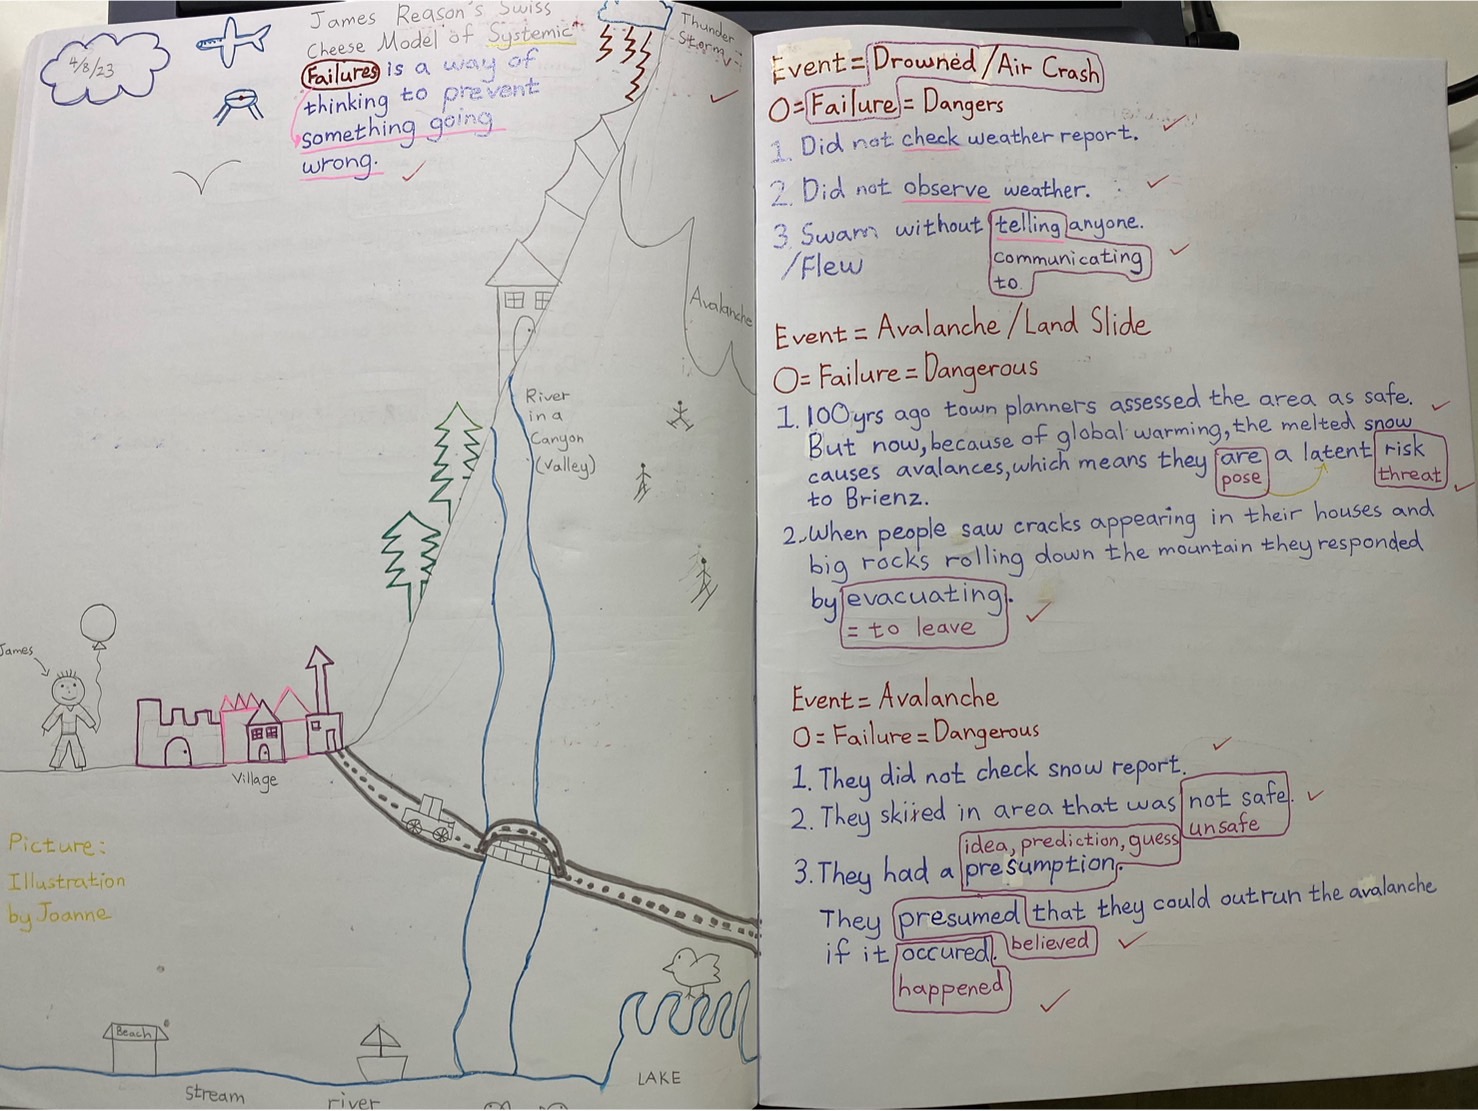 4/8/23
James Reason's Swiss
Cheese Model of Systemic
Failures is a way of
thinking to prevent
something going
wrong.
Thunder
Storm
Avalanche
River
in a
Canyon
(Valley)
James
Village
Picture:
Illustration
by Joanne
Beach
LAKE
stream
river
Event = Drowned / Air Crash
O = Failure = Dangers
1. Did not check weather report.
2. Did not observe weather.
3. Swam without telling anyone.
/Flew communicating
to
Event = Avalanche / Land Slide
O = Failure = Dangerous
1. 100yrs ago town planners assessed the area as safe.
But now, because of global warming, the melted snow
causes avalances, which means they are a latent risk
pose threat
to Brienz.
2. When people saw cracks appearing in their houses and
big rocks rolling down the mountain they responded
by evacuating.
= to leave
Event = Avalanche
O = Failure = Dangerous
1. They did not check snow report.
2. They skired in area that was not safe.
unsafe
idea, prediction, guess
3. They had a presumption.
They presumed that they could outrun the avalanche
if it occured. believed
happened